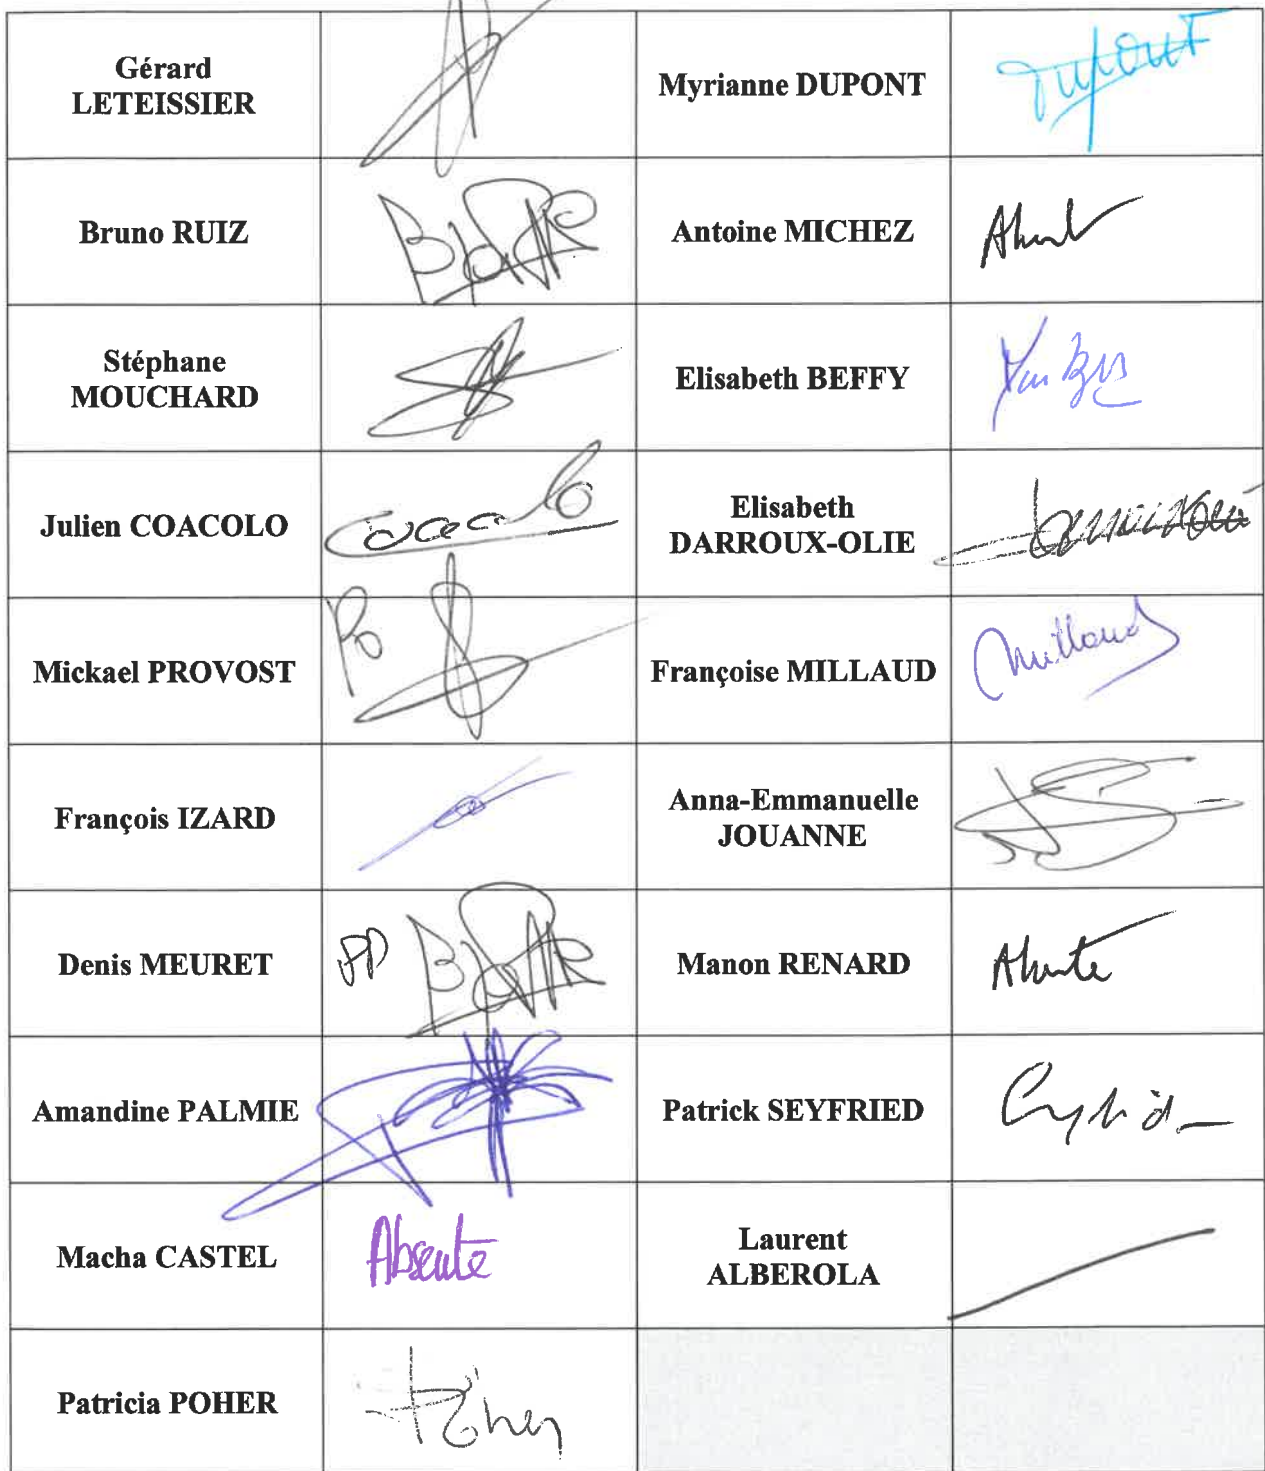 Gérard
LETEISSIER
Myrianne DUPONT
Dupont
Bruno RUIZ
Antoine MICHEZ
Stéphane
MOUCHARD
Elisabeth BEFFY
Julien COACOLO
Coacolo
Elisabeth
DARROUX-OLIE
Mickael PROVOST
Po
Françoise MILLAUD
Millaud
François IZARD
Anna-Emmanuelle
JOUANNE
Denis MEURET
PP
Manon RENARD
Absente
Amandine PALMIE
Patrick SEYFRIED
Macha CASTEL
Absente
Laurent
ALBEROLA
Patricia POHER
Poher